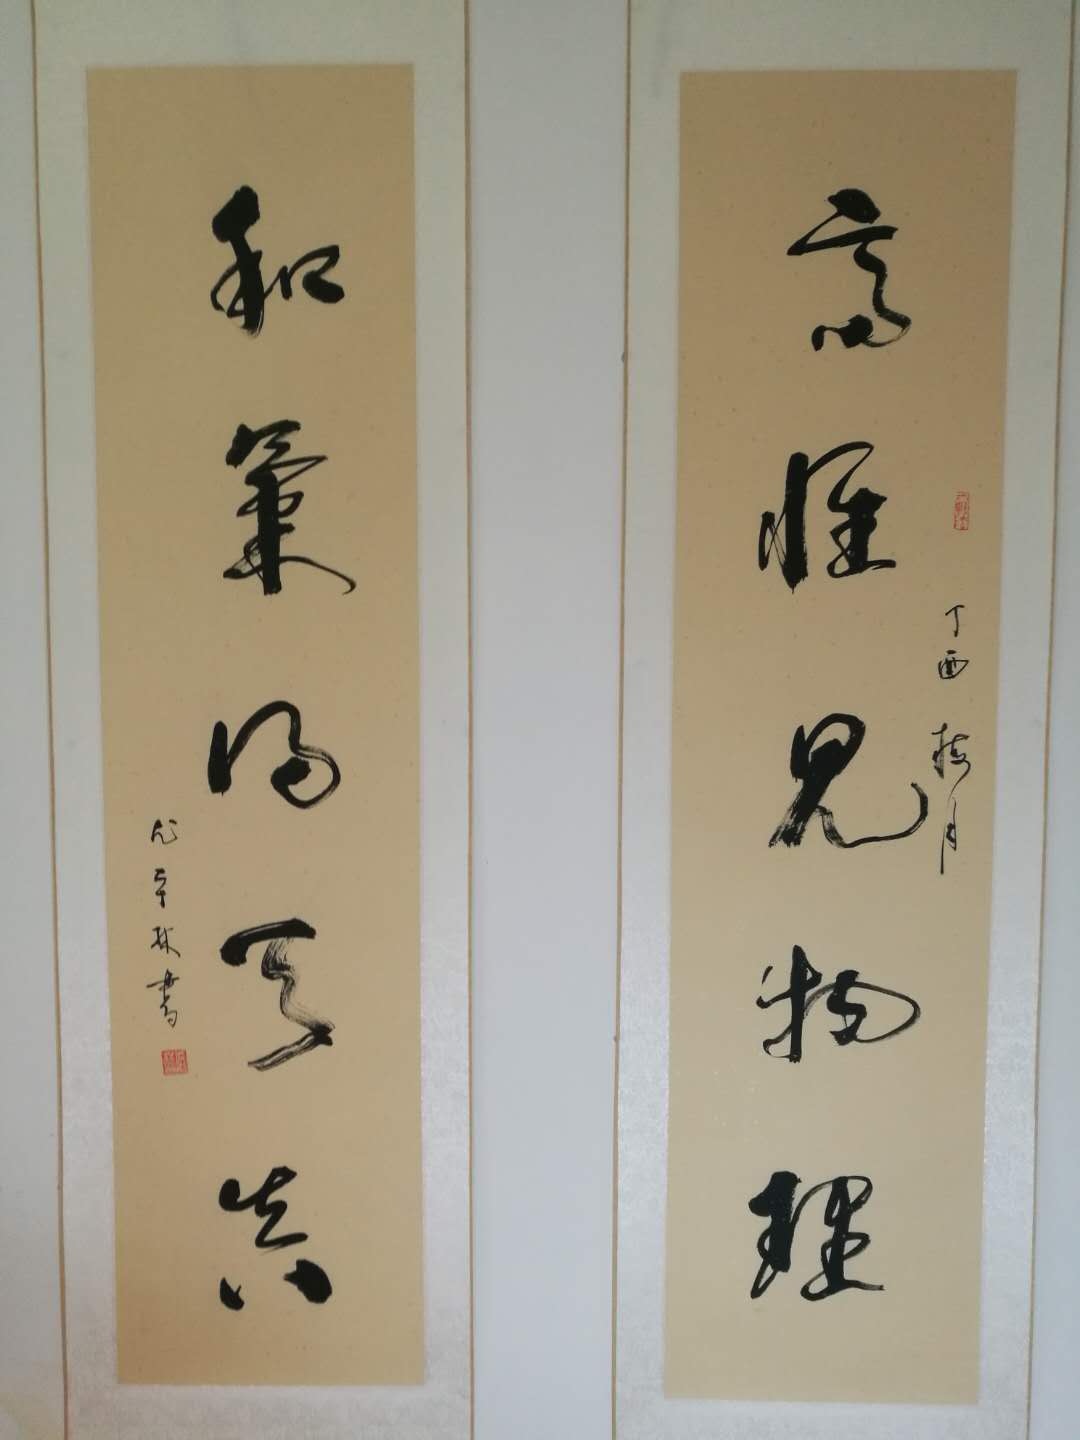 高懷見物理
丁酉 月
和氣得天真
書